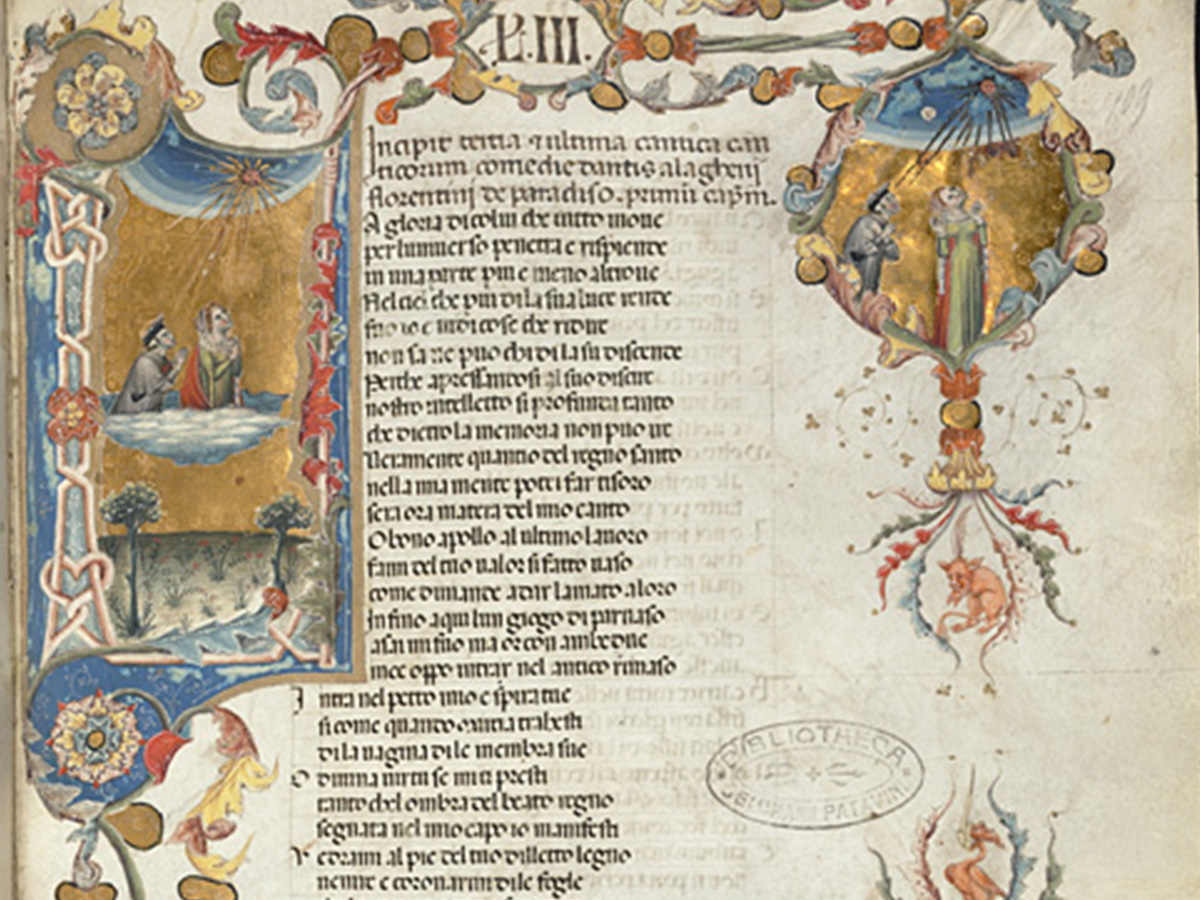 L. III.
Incipit tertia et ultima cantica can
ticorum comedie dantis alagherij
florentinj de paradiso. primum capm.
A gloria di colui che tutto moue
per luniuerso penetra e risplende
in una parte piu e meno altroue
Nel ciel che piu di la sua luce rende
fuo io e uidi cose che ridire
non sa ne puo chi di la su discende
Perche apressandosi al suo disire
nostro intelletto si profunda tanto
che dietro la memoria non puo ire
Veramente quanto del regno santo
nella mia mente potei far tesoro
sera ora matera del mio canto
O bono apollo al ultimo lauoro
fami del tuo ualor si fatto uaso
come dimande a dar lamato aloro
Infino a qui lun giogo di parnaso
assai mi fuo ma or con ambedue
mee oppo intrar nel antico rimaso
Intra nel petto mio e spira tue
si come quando marsia trahesti
di la uagina di le membra sue
O diuina uirtu se mi ti presti
tanto chel ombra del beato regno
segnata nel mio capo io manifesti
Vedrami al pie del tuo diletto legno
uenire e coronarmi di le foglie
109
BIBLIOTHECA
SEMINARII PATAVINI